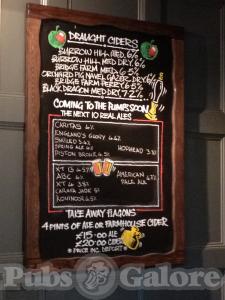 DRAUGHT CIDERS
BURROW HILL MED. 6%
BURROW HILL MED DRY. 6%
BRIDGE FARM MED. 6.5%
ORCHARD PIG NAVEL GAZER. DRY. 6%
BRIDGE FARM PERRY. 6.5%
BLACK DRAGON MED DRY. 7.2%
COMING TO THE PUMPS SOON
THE NEXT 10 REAL ALES
CARITAS 4%
ENGLAND'S GLORY 4.6%
SPRING ALE
HOPHEAD 3.8%
PISTON BROKE 4.5%
XT 13 4.5%
ABC 4%
AMERICAN 4.7%
PALE ALE
CARARA JACK
KOHINOOR 4.5%
TAKE AWAY FLAGONS
4 PINTS OF ALE OR FARMHOUSE CIDER
£15.00 ALE
£20.00 CIDER
* PRICE INC DEPOSIT *
Pubs Galore